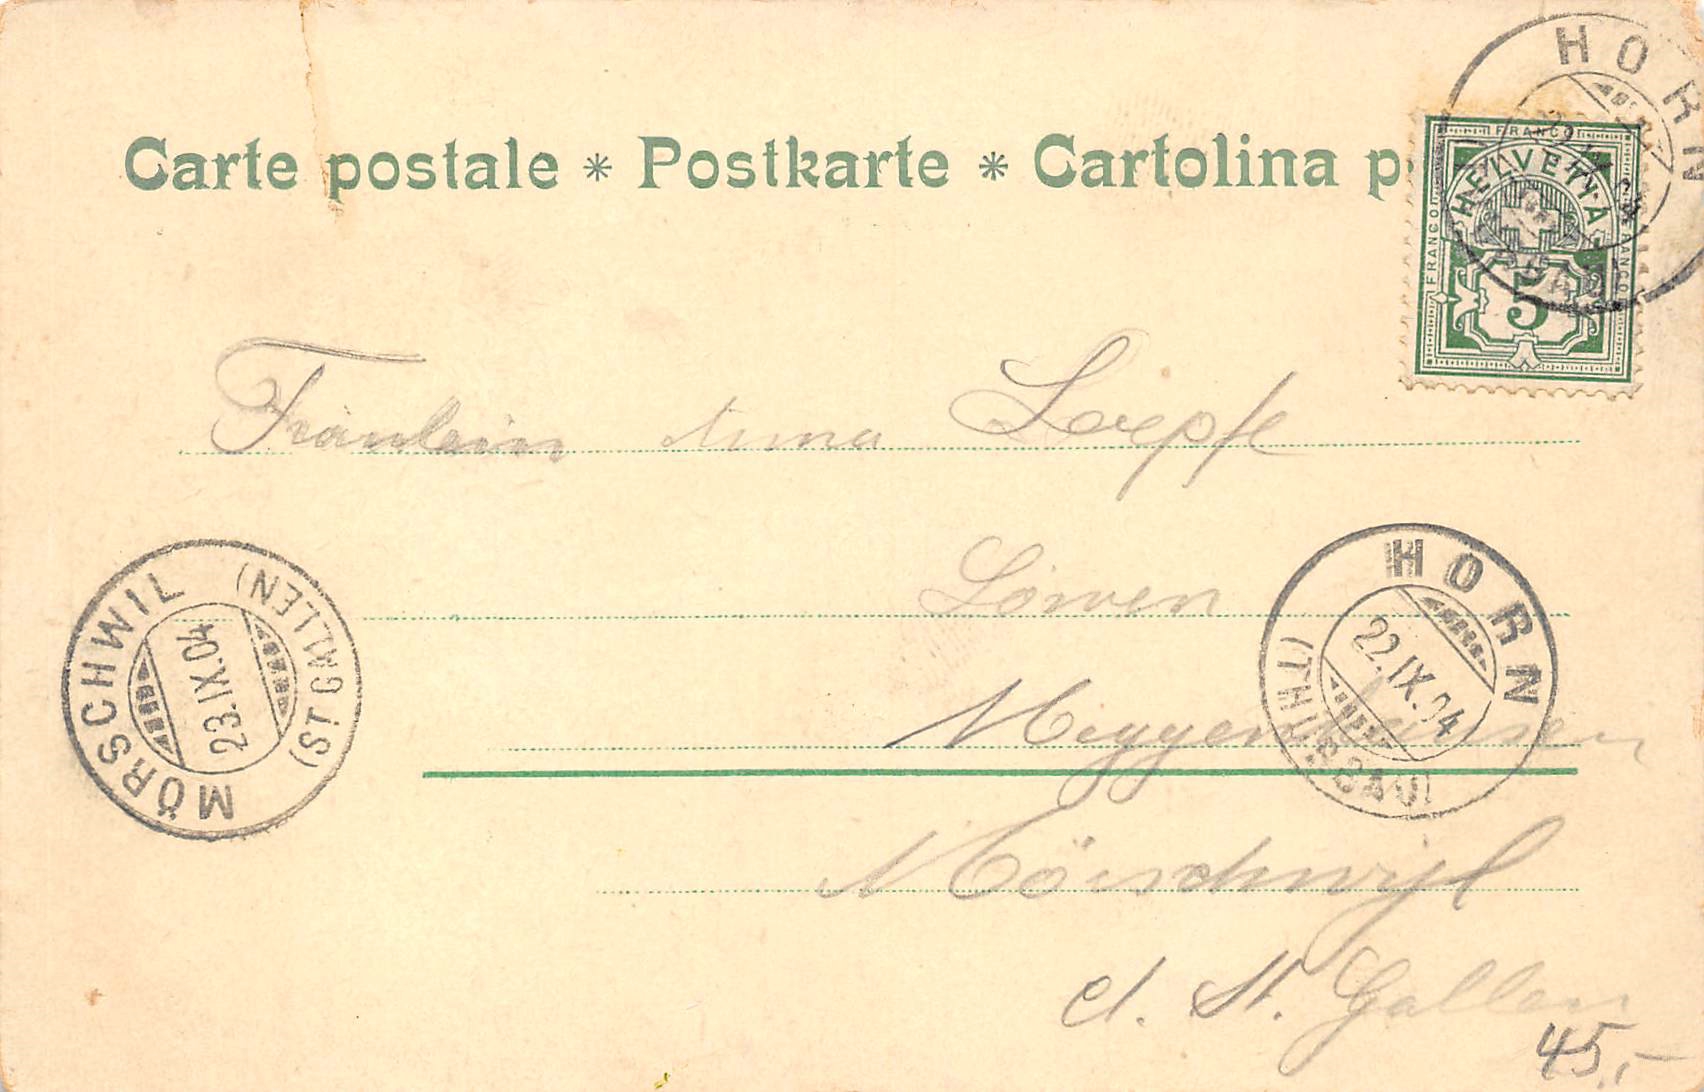 Carte postale * Postkarte * Cartolina p
FRANCO
HELVETIA
FRANCO
FRANCO
5
HORN
Fräulein Anna Loepfe
Löwen
Meggenhausen
Mörschwyl
Ct. St. Gallen
45,-
MÖRSCHWIL
23.IX.04
(ST. GALLEN)
HORN
22.IX.04
(THURGAU)